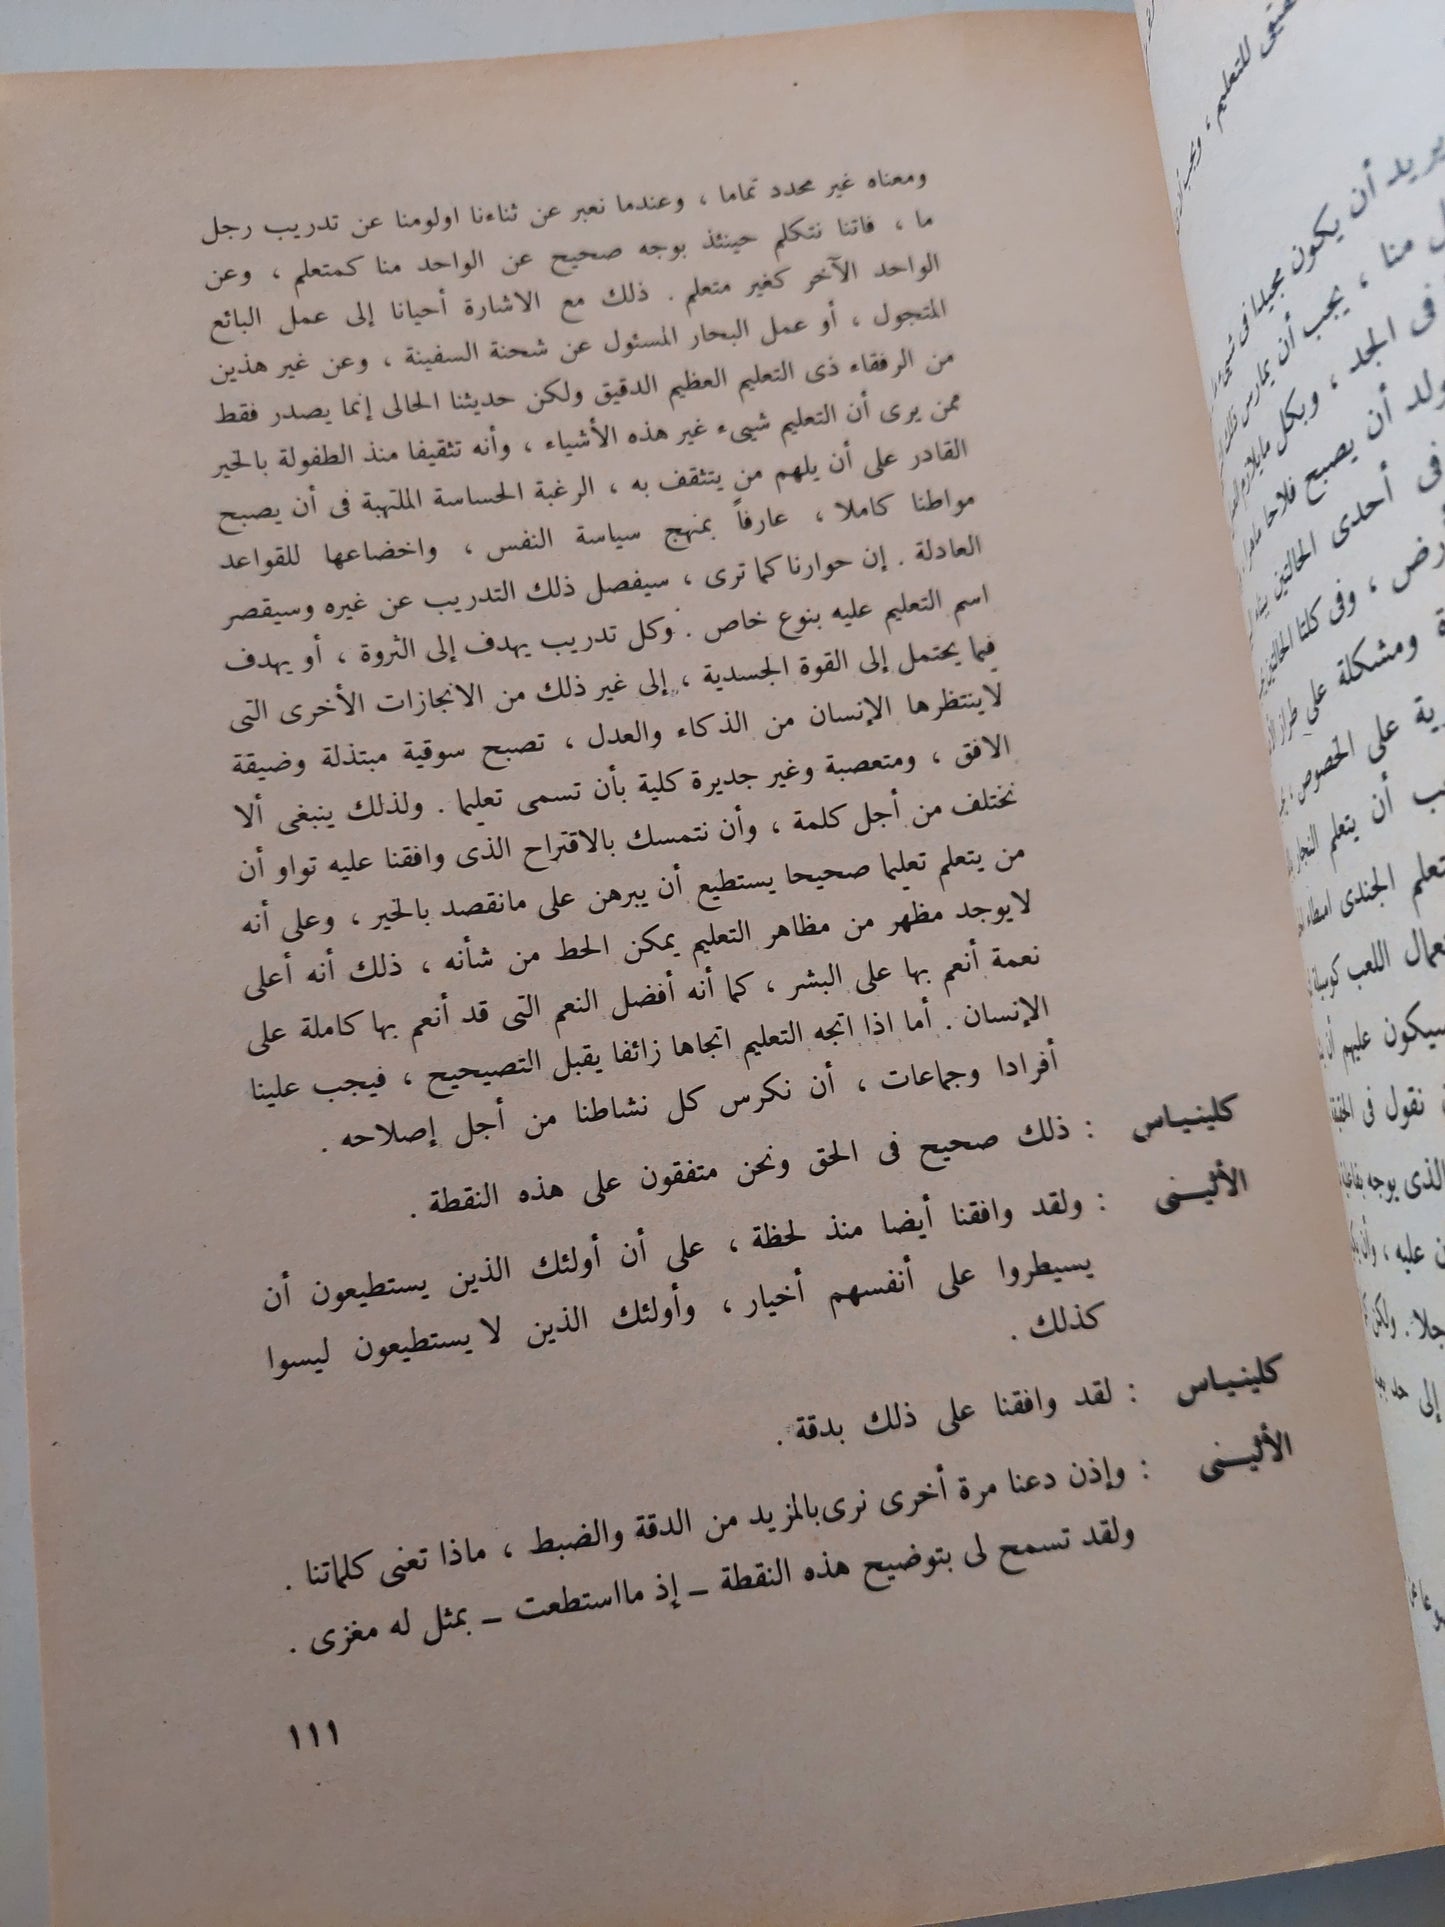 ومعناه غير محدد تماما ، وعندما نعبر عن ثناءنا اولومنا عن تدريب رجل
ما ، فاتنا نتكلم حينئذ بوجه صحيح عن الواحد منا كمتعلم ، وعن
الواحد الآخر كغير متعلم . ذلك مع الاشارة أحيانا إلى عمل البائع
المتجول ، أو عمل البحار المسئول عن شحنة السفينة ، وعن غير هذين
من الرفقاء ذى التعليم العظيم الدقيق ولكن حديثنا الحالى إنما يصدر فقط
ممن يرى أن التعليم شيىء غير هذه الأشياء ، وأنه تثقيفا منذ الطفولة بالخير
القادر على أن يلهم من يتثقف به ، الرغبة الحساسة الملتهبة فى أن يصبح
مواطنا كاملا ، عارفاً بمنهج سياسة النفس ، واخضاعها للقواعد
العادلة . إن حوارنا كما ترى ، سيفصل ذلك التدريب عن غيره وسيقصر
اسم التعليم عليه بنوع خاص . وكل تدريب يهدف إلى الثروة ، أو يهدف
فيما يحتمل إلى القوة الجسدية ، إلى غير ذلك من الانجازات الأخرى التى
لاينتظرها الإنسان من الذكاء والعدل ، تصبح سوقية مبتذلة وضيقة
الافق ، ومتعصبة وغير جديرة كلية بأن تسمى تعليما . ولذلك ينبغى ألا
نختلف من أجل كلمة ، وأن نتمسك بالاقتراح الذى وافقنا عليه تواو أن
من يتعلم تعليما صحيحا يستطيع أن يبرهن على مانقصد بالخير ، وعلى أنه
لايوجد مظهر من مظاهر التعليم يمكن الحط من شأنه ، ذلك أنه أعلى
نعمة أنعم بها على البشر ، كما أنه أفضل النعم التى قد أنعم بها كاملة على
الإنسان . أما اذا اتجه التعليم اتجاها زائفا يقبل التصيحيح ، فيجب علينا
أفرادا وجماعات ، أن نكرس كل نشاطنا من أجل إصلاحه .
كلينياس : ذلك صحيح فى الحق ونحن متفقون على هذه النقطة .
الأثينى : ولقد وافقنا أيضا منذ لحظة ، على أن أولئك الذين يستطيعون أن
يسيطروا على أنفسهم أخيار ، وأولئك الذين لا يستطيعون ليسوا
كذلك .
كلينياس : لقد وافقنا على ذلك بدقة .
الأثينى : وإذن دعنا مرة أخرى نرى بالمزيد من الدقة والضبط ، ماذا تعنى كلماتنا .
ولقد تسمح لى بتوضيح هذه النقطة – إذ مااستطعت – بمثل له مغزى .
١١١
للتعليم ،
يريد أن يكون مجيدا فى
منا ، يجب أن يمارس
فى الجد ، وبكل مايلازم
أن يصبح فلاحا
فى أحدى الحالتين
، وفى كلتا الحالتين
ومشكلة على طراز
على الخصوص ،
أن يتعلم النجار
الجندى امتطاء
اللعب كوسيلة
سيكون عليهم أن
نقول فى
الذى يوجه
عليه ،
ولكن
إلى حد